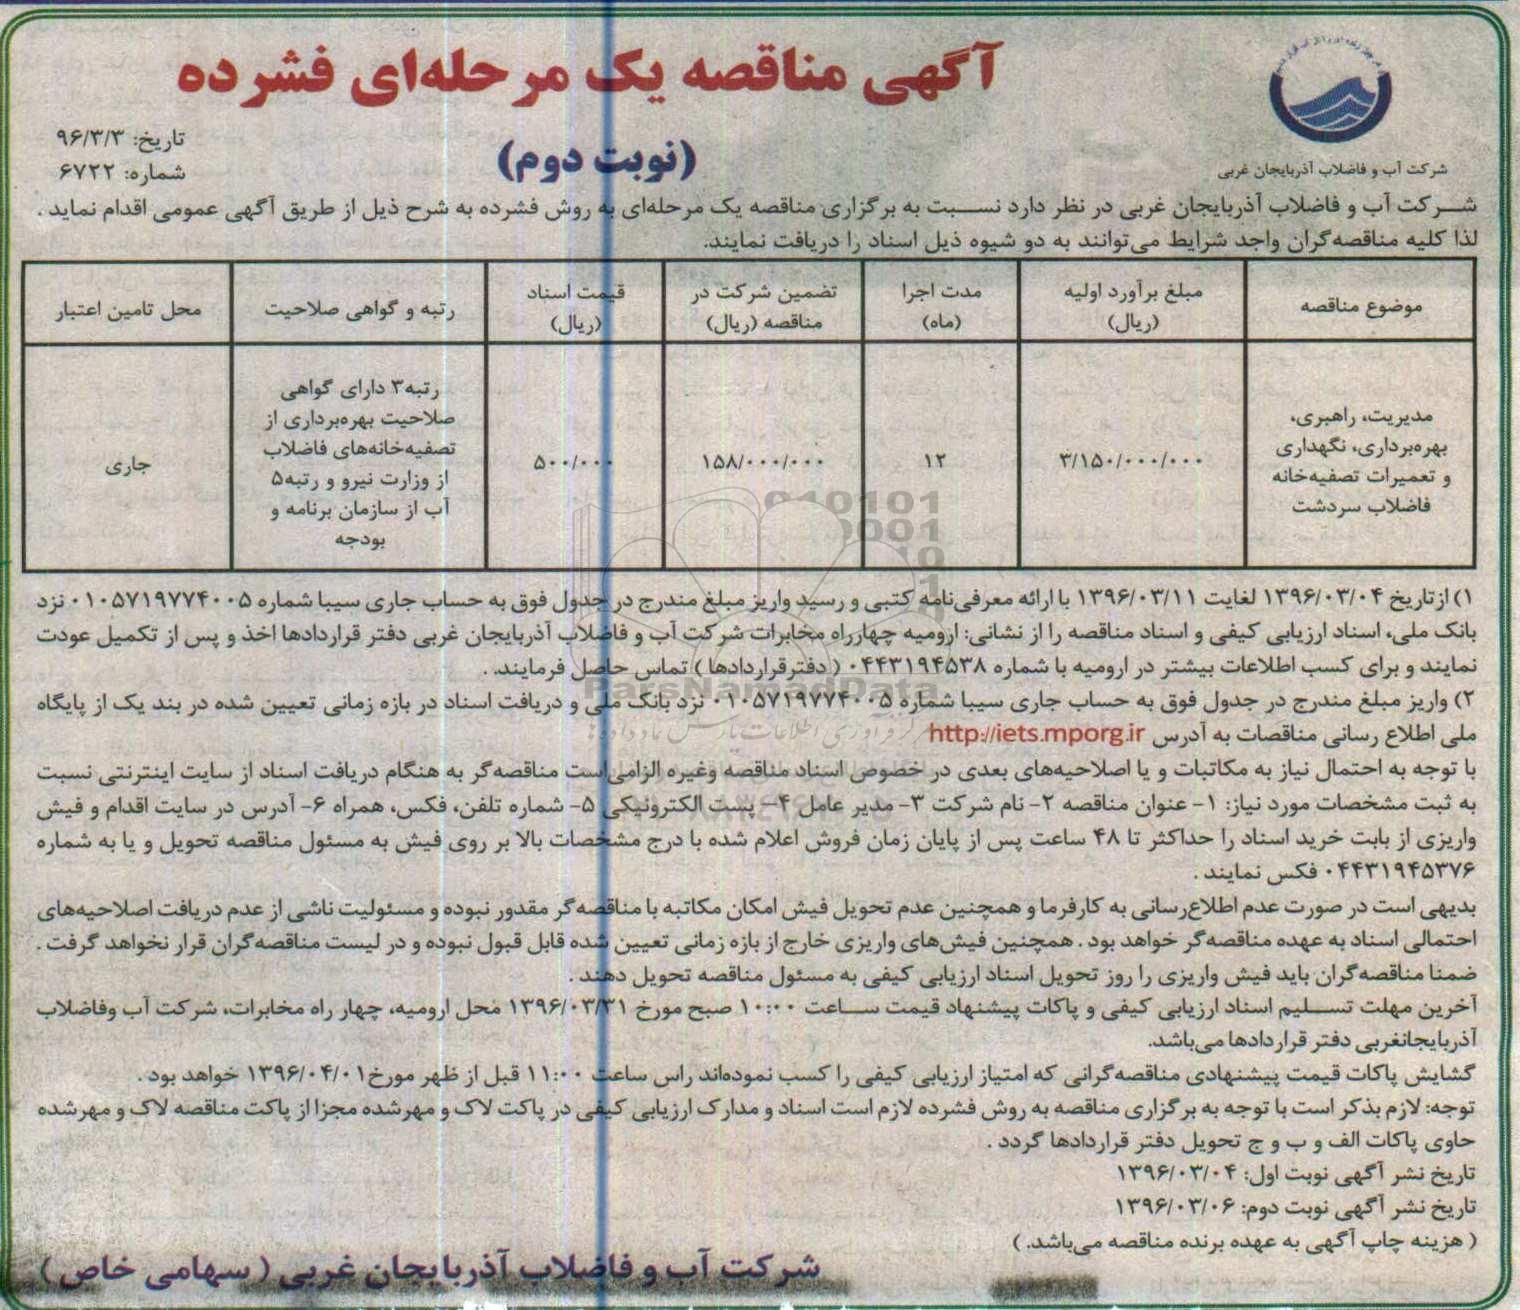 آگهی مناقصه یک مرحله‌ای فشرده
(نوبت دوم)
تاریخ: ۹۶/۳/۳
شماره: ۶۷۲۲
شرکت آب و فاضلاب آذربایجان غربی
شرکت آب و فاضلاب آذربایجان غربی در نظر دارد نسبت به برگزاری مناقصه یک مرحله‌ای به روش فشرده به شرح ذیل از طریق آگهی عمومی اقدام نماید.
لذا کلیه مناقصه‌گران واجد شرایط می‌توانند به دو شیوه ذیل اسناد را دریافت نمایند.
موضوع مناقصه
مبلغ برآورد اولیه
(ریال)
مدت اجرا
(ماه)
تضمین شرکت در
مناقصه (ریال)
قیمت اسناد
(ریال)
رتبه و گواهی صلاحیت
محل تامین اعتبار
مدیریت، راهبری،
بهره‌برداری، نگهداری
و تعمیرات تصفیه‌خانه
فاضلاب سردشت
۳/۱۵۰/۰۰۰/۰۰۰
۱۲
۱۵۸/۰۰۰/۰۰۰
۵۰۰/۰۰۰
رتبه۳ دارای گواهی
صلاحیت بهره‌برداری از
تصفیه‌خانه‌های فاضلاب
از وزارت نیرو و رتبه۵
آب از سازمان برنامه و
بودجه
جاری
۱) ازتاریخ ۱۳۹۶/۰۳/۰۴ لغایت ۱۳۹۶/۰۳/۱۱ با ارائه معرفی‌نامه کتبی و رسید واریز مبلغ مندرج در جدول فوق به حساب جاری سیبا شماره ۰۱۰۵۷۱۹۷۷۴۰۰۵ نزد
بانک ملی، اسناد ارزیابی کیفی و اسناد مناقصه را از نشانی: ارومیه چهارراه مخابرات شرکت آب و فاضلاب آذربایجان غربی دفتر قراردادها اخذ و پس از تکمیل عودت
نمایند و برای کسب اطلاعات بیشتر در ارومیه با شماره ۰۴۴۳۱۹۴۵۳۸ (دفترقراردادها) تماس حاصل فرمایند.
۲) واریز مبلغ مندرج در جدول فوق به حساب جاری سیبا شماره ۰۱۰۵۷۱۹۷۷۴۰۰۵ نزد بانک ملی و دریافت اسناد در بازه زمانی تعیین شده در بند یک از پایگاه
ملی اطلاع رسانی مناقصات به آدرس http://iets.mporg.ir
با توجه به احتمال نیاز به مکاتبات و یا اصلاحیه‌های بعدی در خصوص اسناد مناقصه وغیره الزامی‌است مناقصه‌گر به هنگام دریافت اسناد از سایت اینترنتی نسبت
به ثبت مشخصات مورد نیاز: ۱- عنوان مناقصه ۲- نام شرکت ۳- مدیر عامل ۴- پست الکترونیکی ۵- شماره تلفن، فکس، همراه ۶- آدرس در سایت اقدام و فیش
واریزی از بابت خرید اسناد را حداکثر تا ۴۸ ساعت پس از پایان زمان فروش اعلام شده با درج مشخصات بالا بر روی فیش به مسئول مناقصه تحویل و یا به شماره
۰۴۴۳۱۹۴۵۳۷۶ فکس نمایند.
بدیهی است در صورت عدم اطلاع‌رسانی به کارفرما و همچنین عدم تحویل فیش امکان مکاتبه با مناقصه‌گر مقدور نبوده و مسئولیت ناشی از عدم دریافت اصلاحیه‌های
احتمالی اسناد به عهده مناقصه‌گر خواهد بود. همچنین فیش‌های واریزی خارج از بازه زمانی تعیین شده قابل قبول نبوده و در لیست مناقصه‌گران قرار نخواهد گرفت.
ضمنا مناقصه‌گران باید فیش واریزی را روز تحویل اسناد ارزیابی کیفی به مسئول مناقصه تحویل دهند.
آخرین مهلت تسلیم اسناد ارزیابی کیفی و پاکات پیشنهاد قیمت ساعت ۱۰:۰۰ صبح مورخ ۱۳۹۶/۰۳/۳۱ محل ارومیه، چهار راه مخابرات، شرکت آب وفاضلاب
آذربایجانغربی دفتر قراردادها می‌باشد.
گشایش پاکات قیمت پیشنهادی مناقصه‌گرانی که امتیاز ارزیابی کیفی را کسب نموده‌اند راس ساعت ۱۱:۰۰ قبل از ظهر مورخ۱۳۹۶/۰۴/۰۱ خواهد بود.
توجه: لازم بذکر است با توجه به برگزاری مناقصه به روش فشرده لازم است اسناد و مدارک ارزیابی کیفی در پاکت لاک و مهرشده مجزا از پاکت مناقصه لاک و مهرشده
حاوی پاکات الف و ب و ج تحویل دفتر قراردادها گردد.
تاریخ نشر آگهی نوبت اول: ۱۳۹۶/۰۳/۰۴
تاریخ نشر آگهی نوبت دوم: ۱۳۹۶/۰۳/۰۶
(هزینه چاپ آگهی به عهده برنده مناقصه می‌باشد.)
شرکت آب و فاضلاب آذربایجان غربی (سهامی خاص)
ParsNamadData